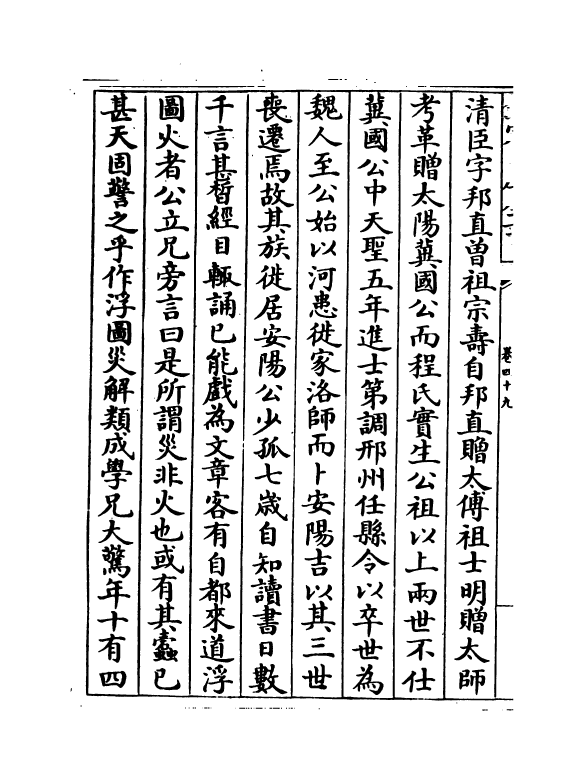 清臣字邦直曽祖宗壽自邦直贈太傅祖士明贈太師
考革贈太陽冀國公而程氏實生公祖以上兩世不仕
冀國公中天聖五年進士第調邢州任縣令以卒世為
魏人至公始以河患徙家洛師而卜安陽吉以其三世
喪遷焉故其族徙居安陽公少孤七歲自知讀書日數
千言其暫經目輒誦已能戲為文章客有自都來道浮
圖火者公立兄旁言曰是所謂災非火也或有其蠹已
甚天固警之乎作浮圖災解類成學兄大驚年十有四
卷四十九